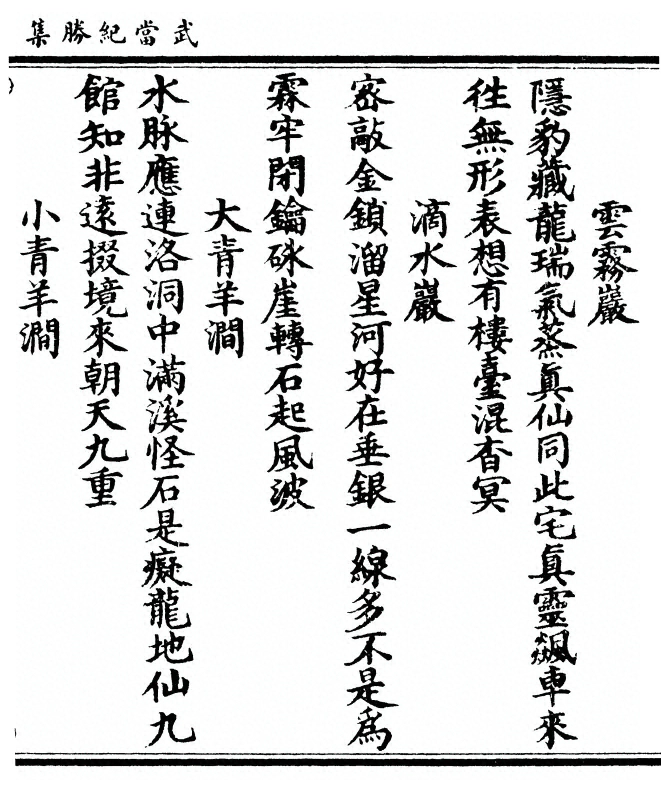 武當紀勝集
雲霧巖
隱豹藏龍瑞氣蒸真仙同此宅真靈飆車來
徃無形表想有樓臺混杳冥
滴水巖
密敲金鎖溜星河好在垂銀一線多不是為
霖牢閉鑰硃崖轉石起風波
大青羊澗
水脉應連洛洞中滿溪怪石是癡龍地仙九
館知非遠掇境來朝天九重
小青羊澗